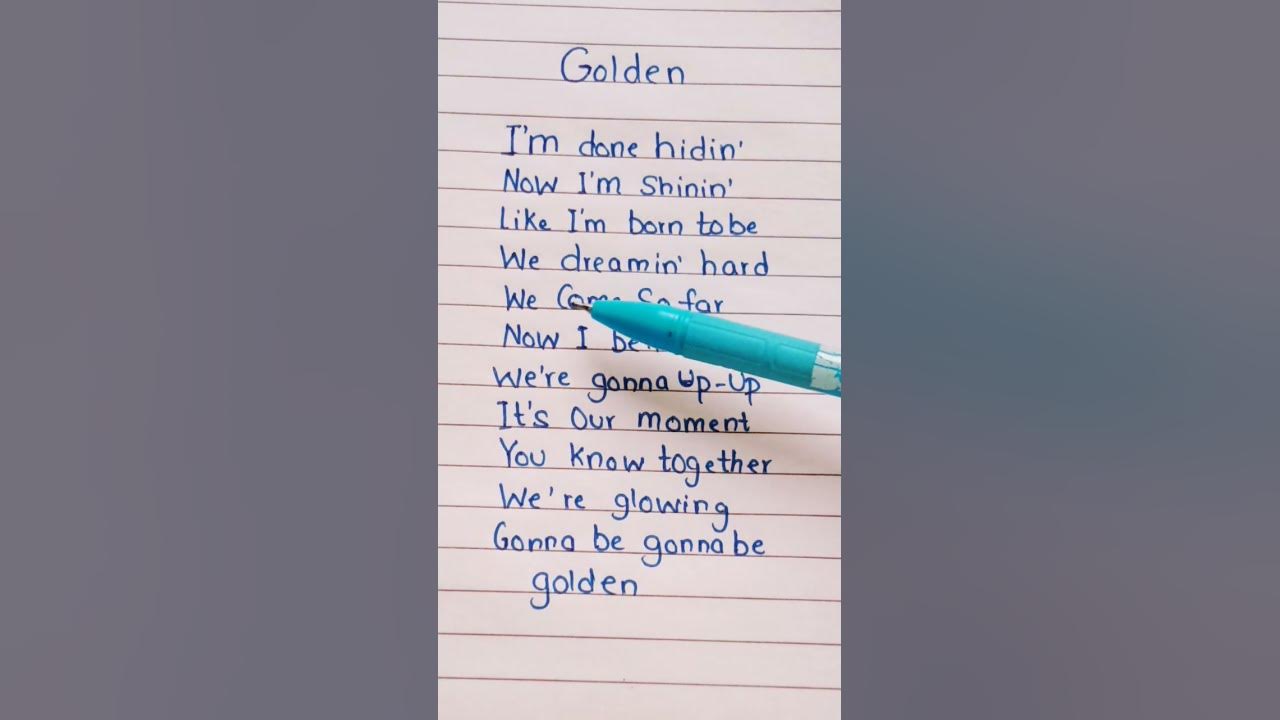 Golden
I'm done hidin'
Now I'm Shinin'
Like I'm born to be
We dreamin' hard
We Come So far
Now I
We're gonna Up-Up
It's Our moment
You Know together
We're glowing
Gonna be gonna be
golden